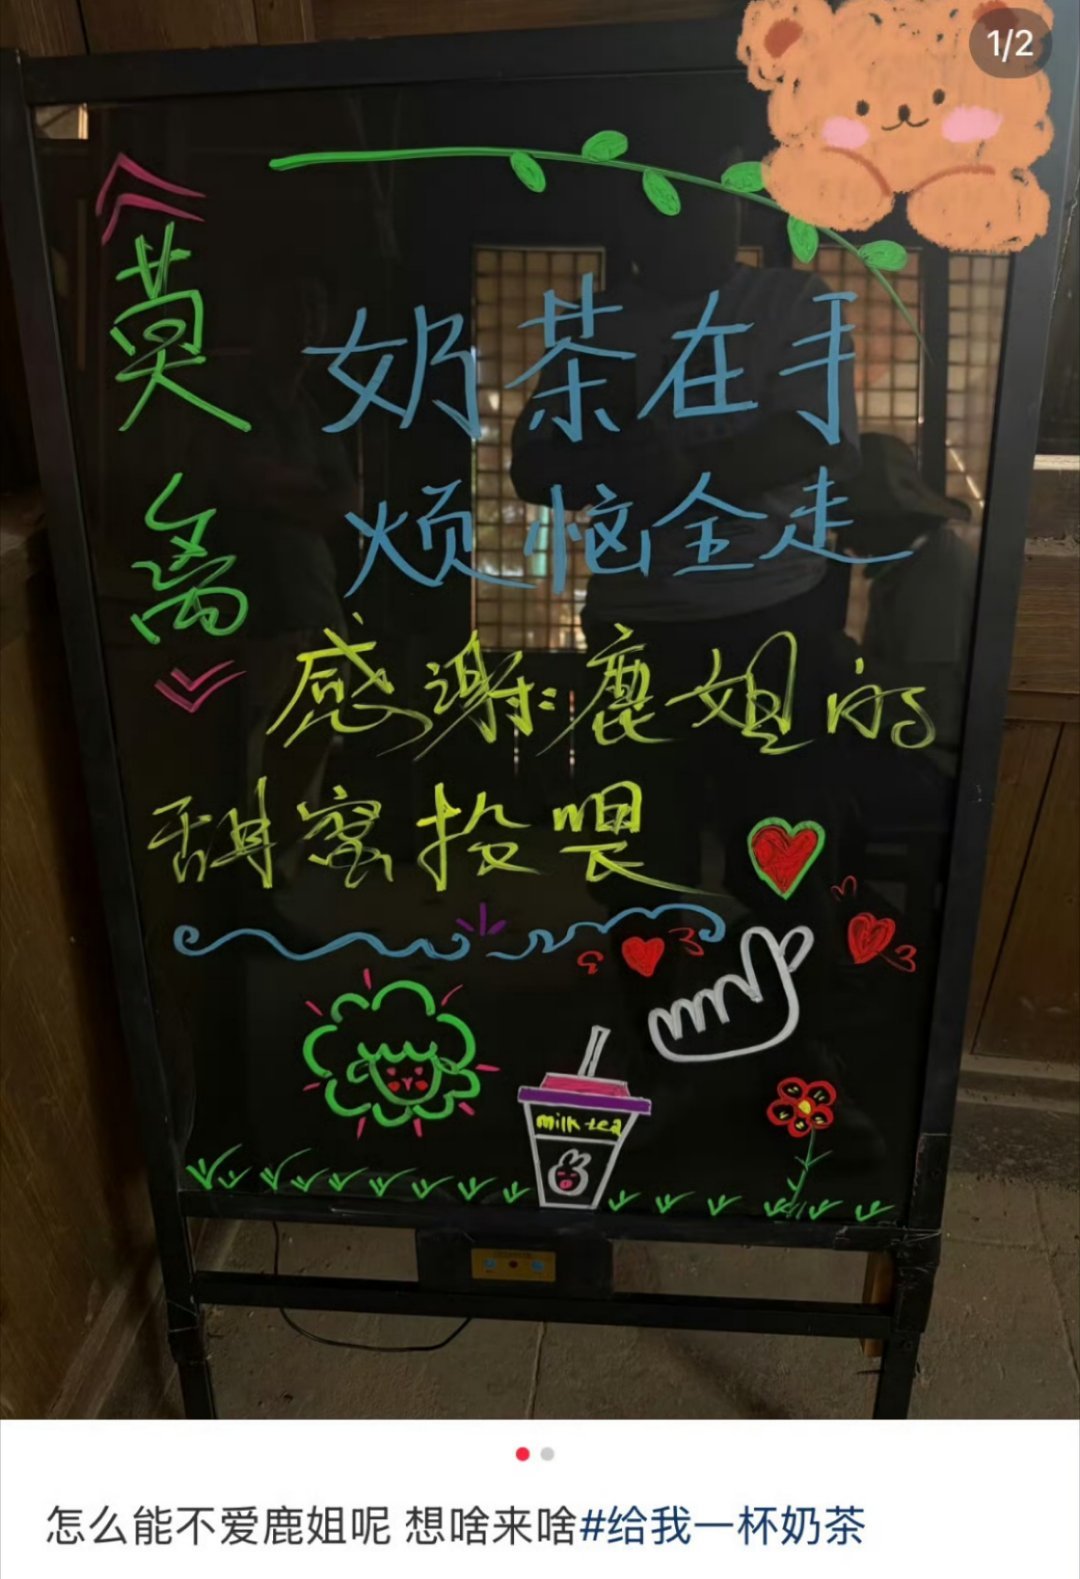 1/2
《莫离》
奶茶在手
烦恼全走
感谢鹿姐的
甜蜜投喂
milk tea
怎么能不爱鹿姐呢 想啥来啥#给我一杯奶茶